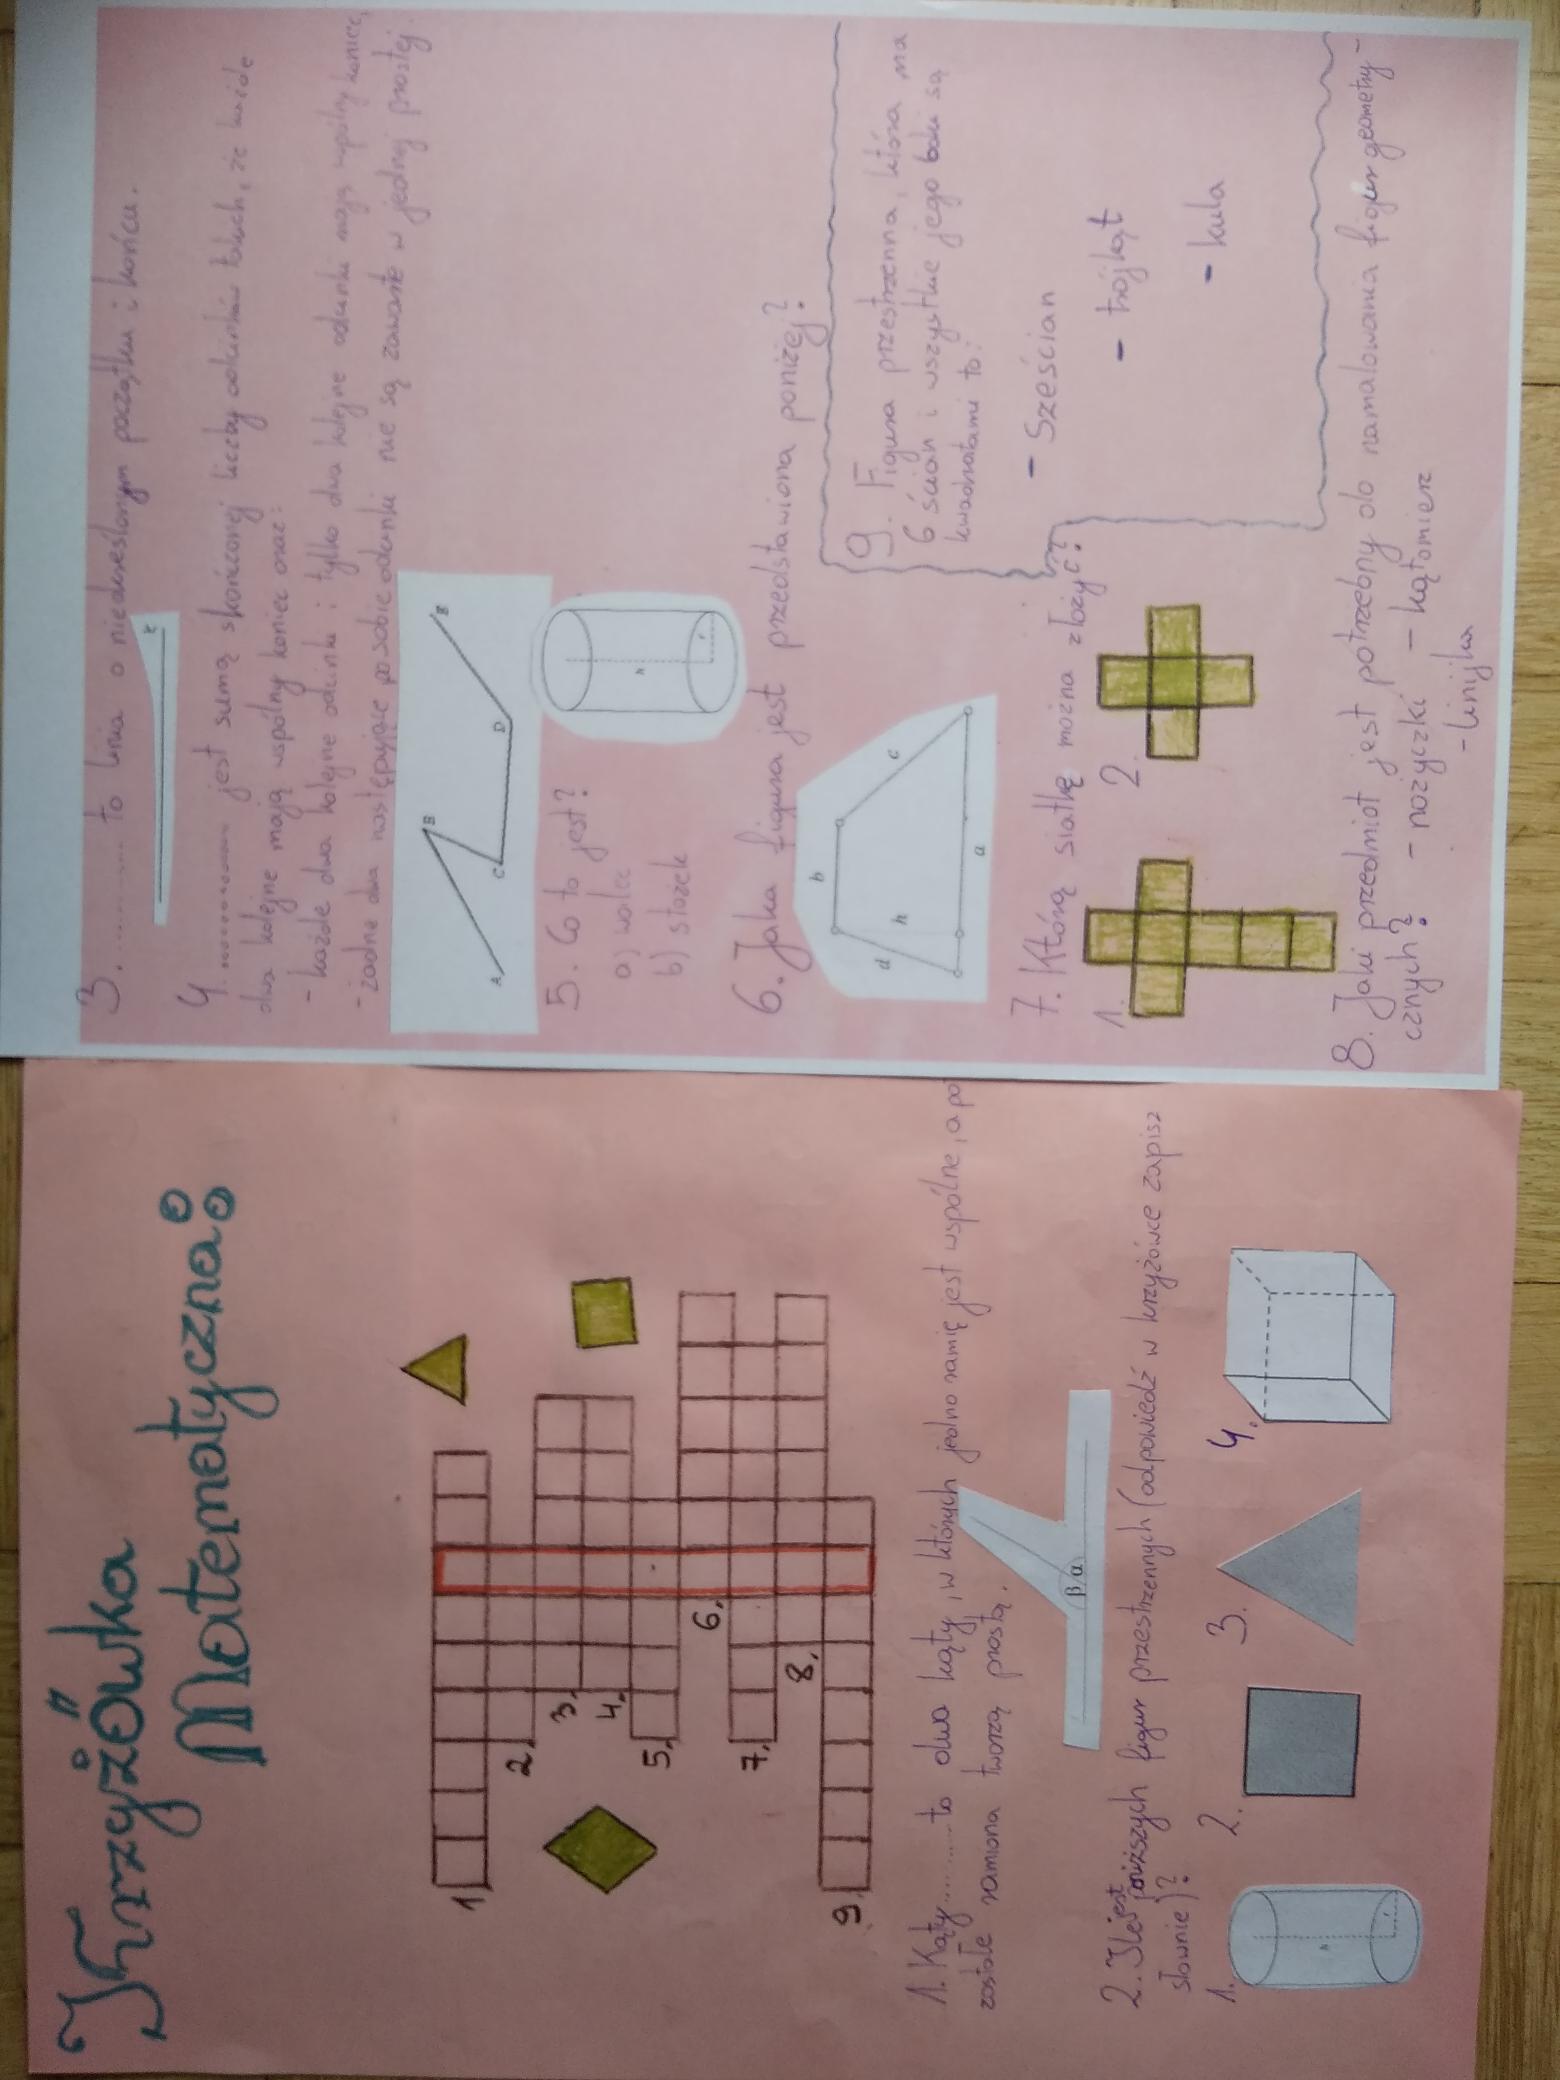 Krzyżówka
Matematyczna
1.
2.
3.
4.
5.
6.
7.
8.
9.
1. Kąty.......... to dwa kąty, w których jedno ramię jest wspólne, a po
zostałe ramiona tworzą prostą.
β α
2. Ile jest poniższych figur przestrzennych (odpowiedź w krzyżówce zapisz
słownie)?
1.
2.
3.
4.
h
r
3. ............ to linia o nieokreślonym początku i końcu.
k
4. ............ jest sumą skończonej liczby odcinków takich, że każde
dwa kolejne mają wspólny koniec oraz:
- każde dwa kolejne odcinki i tylko dwa kolejne odcinki mają wspólny koniec,
- żadne dwa następujące po sobie odcinki nie są zawarte w jednej prostej.
A B C D E
5. Co to jest?
a) walec
b) stożek
h
r
6. Jaka figura jest przedstawiona poniżej?
b
d h c
a
7. Którą siatkę można złożyć?
1.
2.
8. Jaki przedmiot jest potrzebny do namalowania figur geometry-
cznych? - nożyczki - kątomierz
- linijka
9. Figura przestrzenna, która ma
6 ścian i wszystkie jego boki są
kwadratami to:
- Sześcian
- trójkąt
- kula